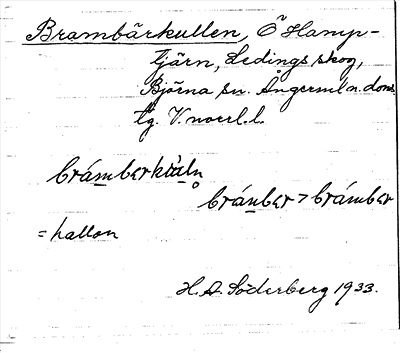 Brambärkullen, Ö Hamp-
tjärn, Ledings skog,
Björna sn. Ångerml a. doms.
tg. V. norrl. l.
brámberkùln̥
bráṉber > brámber
= hallon
H. A. Söderberg 1933.